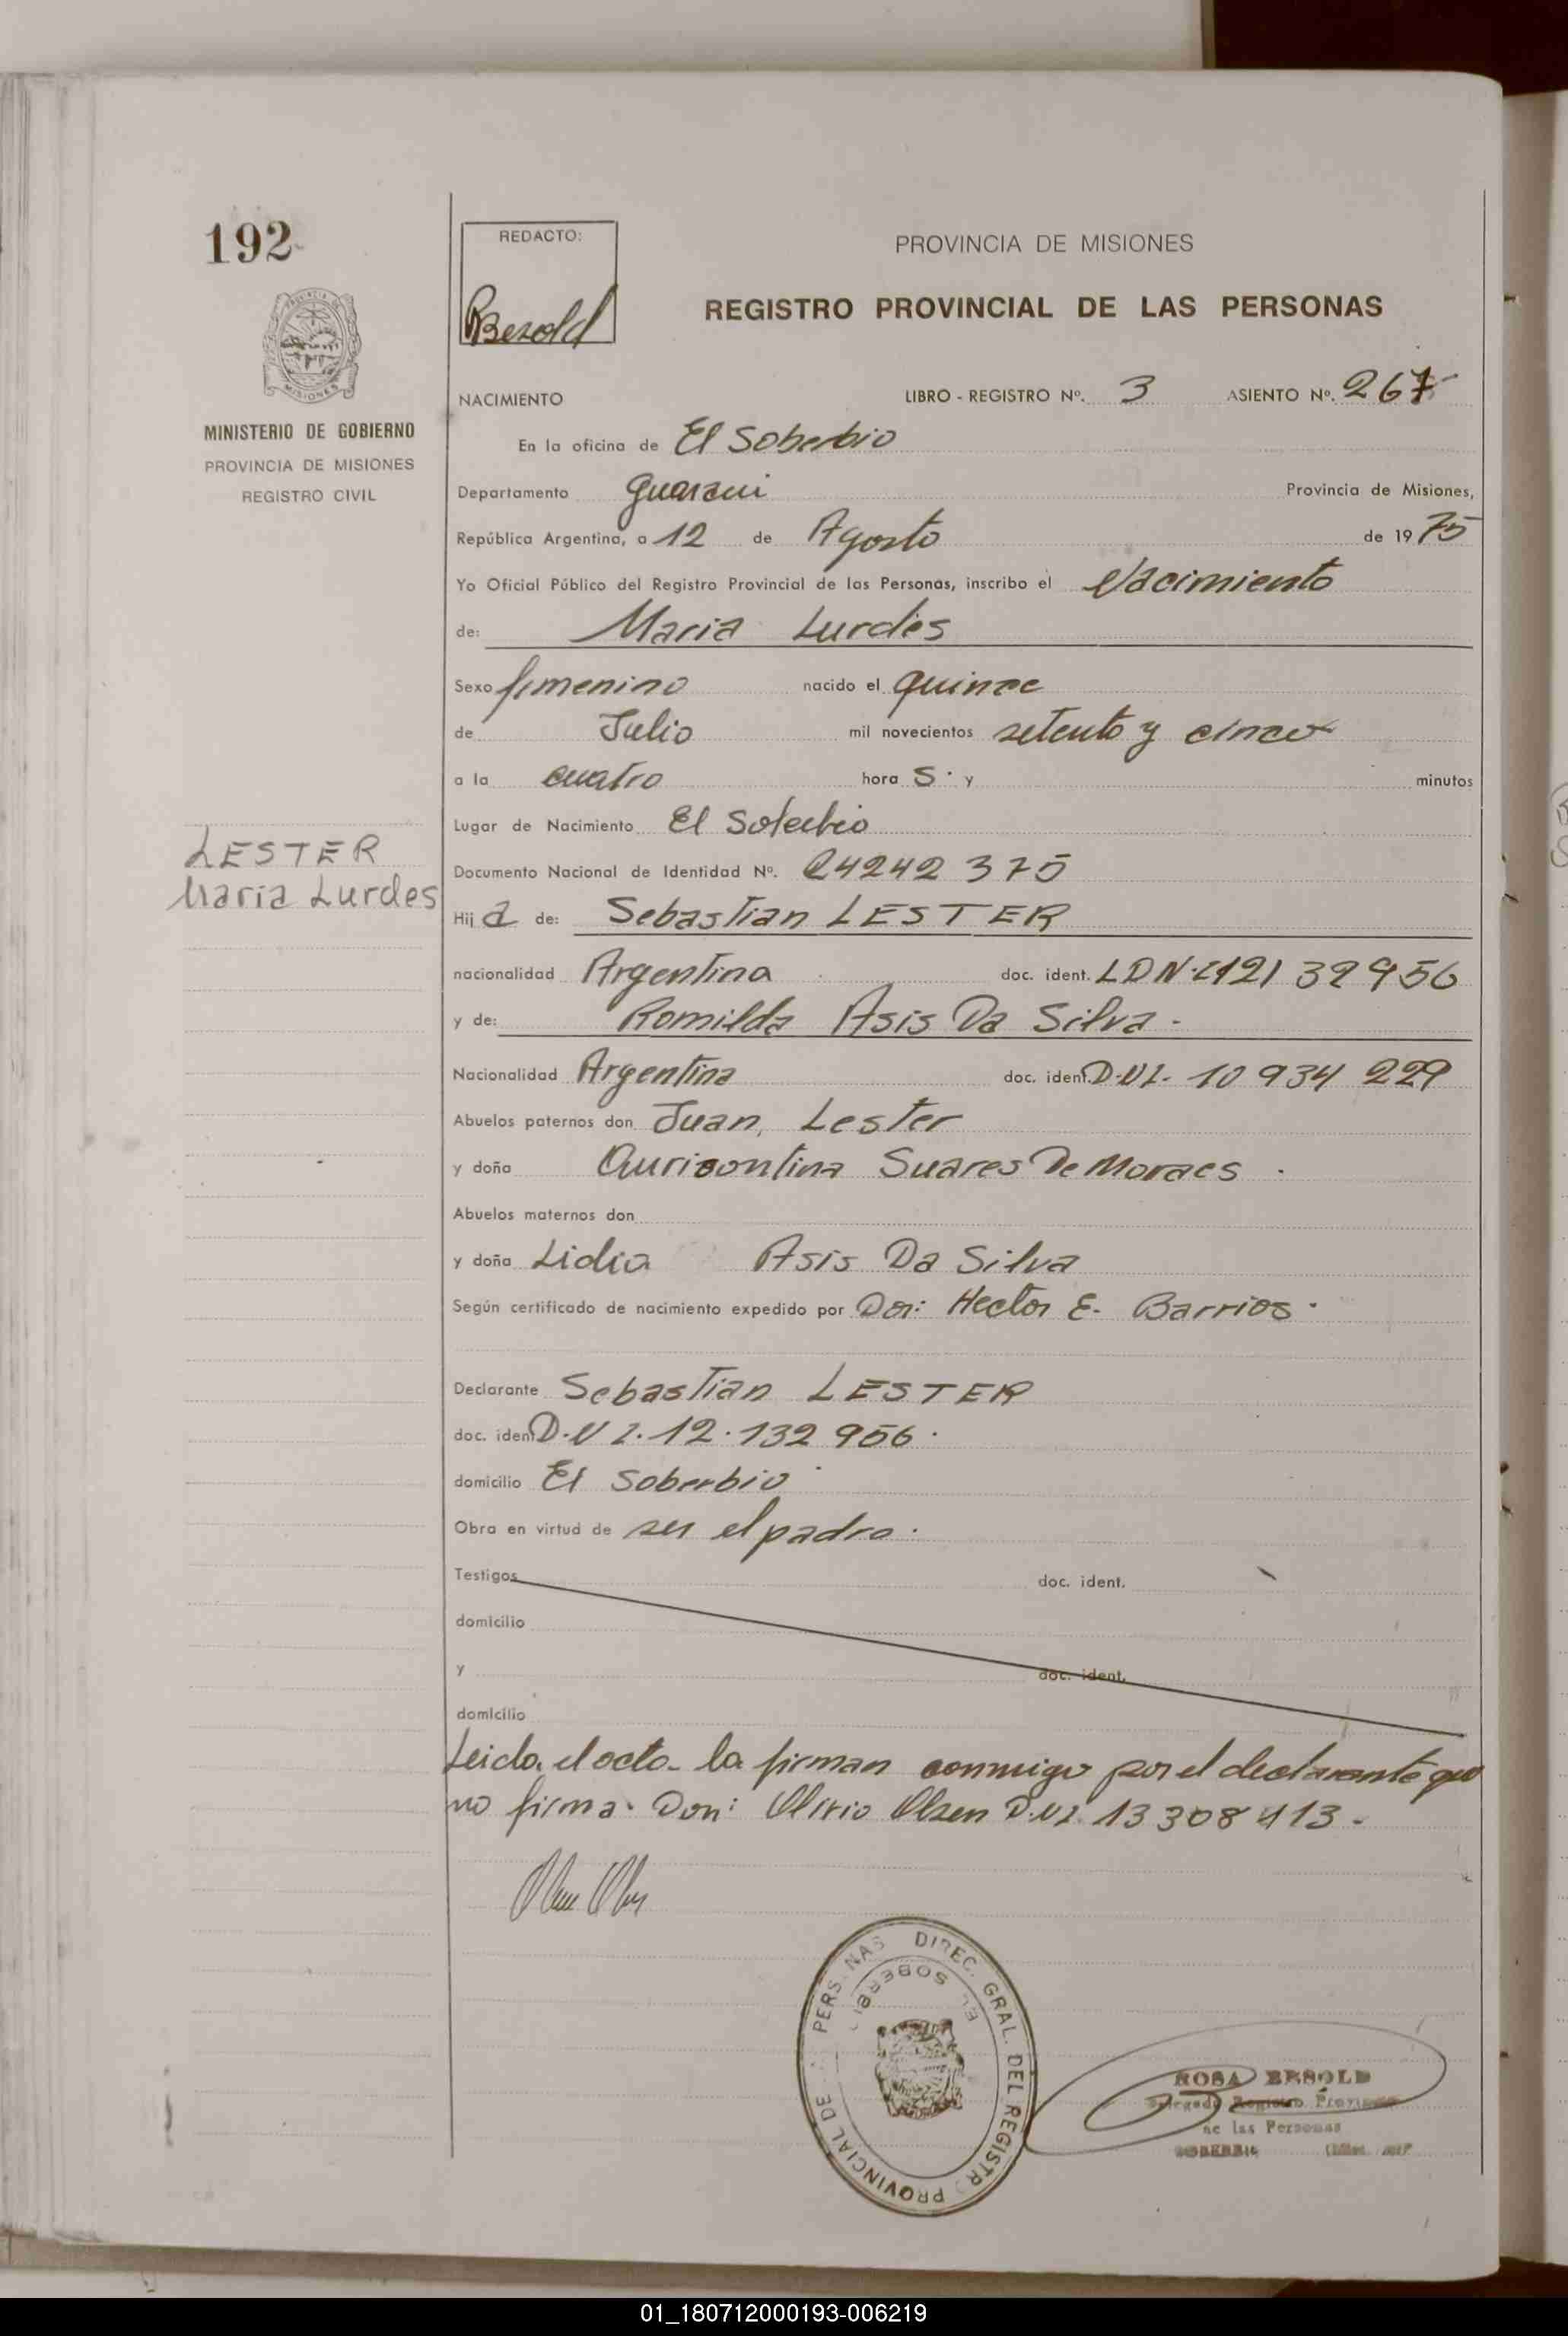 192
REDACTO:
Besold
PROVINCIA DE MISIONES
REGISTRO PROVINCIAL DE LAS PERSONAS
MISIONES
MINISTERIO DE GOBIERNO
PROVINCIA DE MISIONES
REGISTRO CIVIL
NACIMIENTO LIBRO - REGISTRO Nº. 3 ASIENTO Nº. 267
En la oficina de El Soberbio
Departamento Guarani Provincia de Misiones,
República Argentina, a 12 de Agosto de 1975
Yo Oficial Público del Registro Provincial de las Personas, inscribo el Nacimiento
de: Maria Lurdes
Sexo femenino nacido el quince
de Julio mil novecientos setenta y cinco
a la cuatro hora s. y minutos
Lugar de Nacimiento El Soberbio
LESTER
Maria Lurdes
Documento Nacional de Identidad Nº. 24242 375
Hij a de: Sebastian LESTER
nacionalidad Argentina doc. ident.
y de: Romilda Asis Da Silva -
Nacionalidad Argentina doc. ident. D.N.I. 10 934 229
Abuelos paternos don Juan, Lester
y doña Suares De Moraes
Abuelos maternos don
y doña Lidia Asis Da Silva
Según certificado de nacimiento expedido por Don: Hector E. Barrios.
Declarante Sebastian LESTER
doc. ident. D.N.I. 12.132 956.
domicilio El Soberbio
Obra en virtud de ser el padre.
Testigos doc. ident.
domicilio
y doc. ident.
domicilio
Leida el acta la firman conmigo por el declarante que
no firma. Don: Olsen D.N.I. 13 308 413.
DIREC. GRAL. DEL REGISTRO PROVINCIAL DE PERSONAS
EL SOBERBIO
ROSA BESOLD
Delegada Registro Provincial
de las Personas
SOBERBIO
01_180712000193-006219